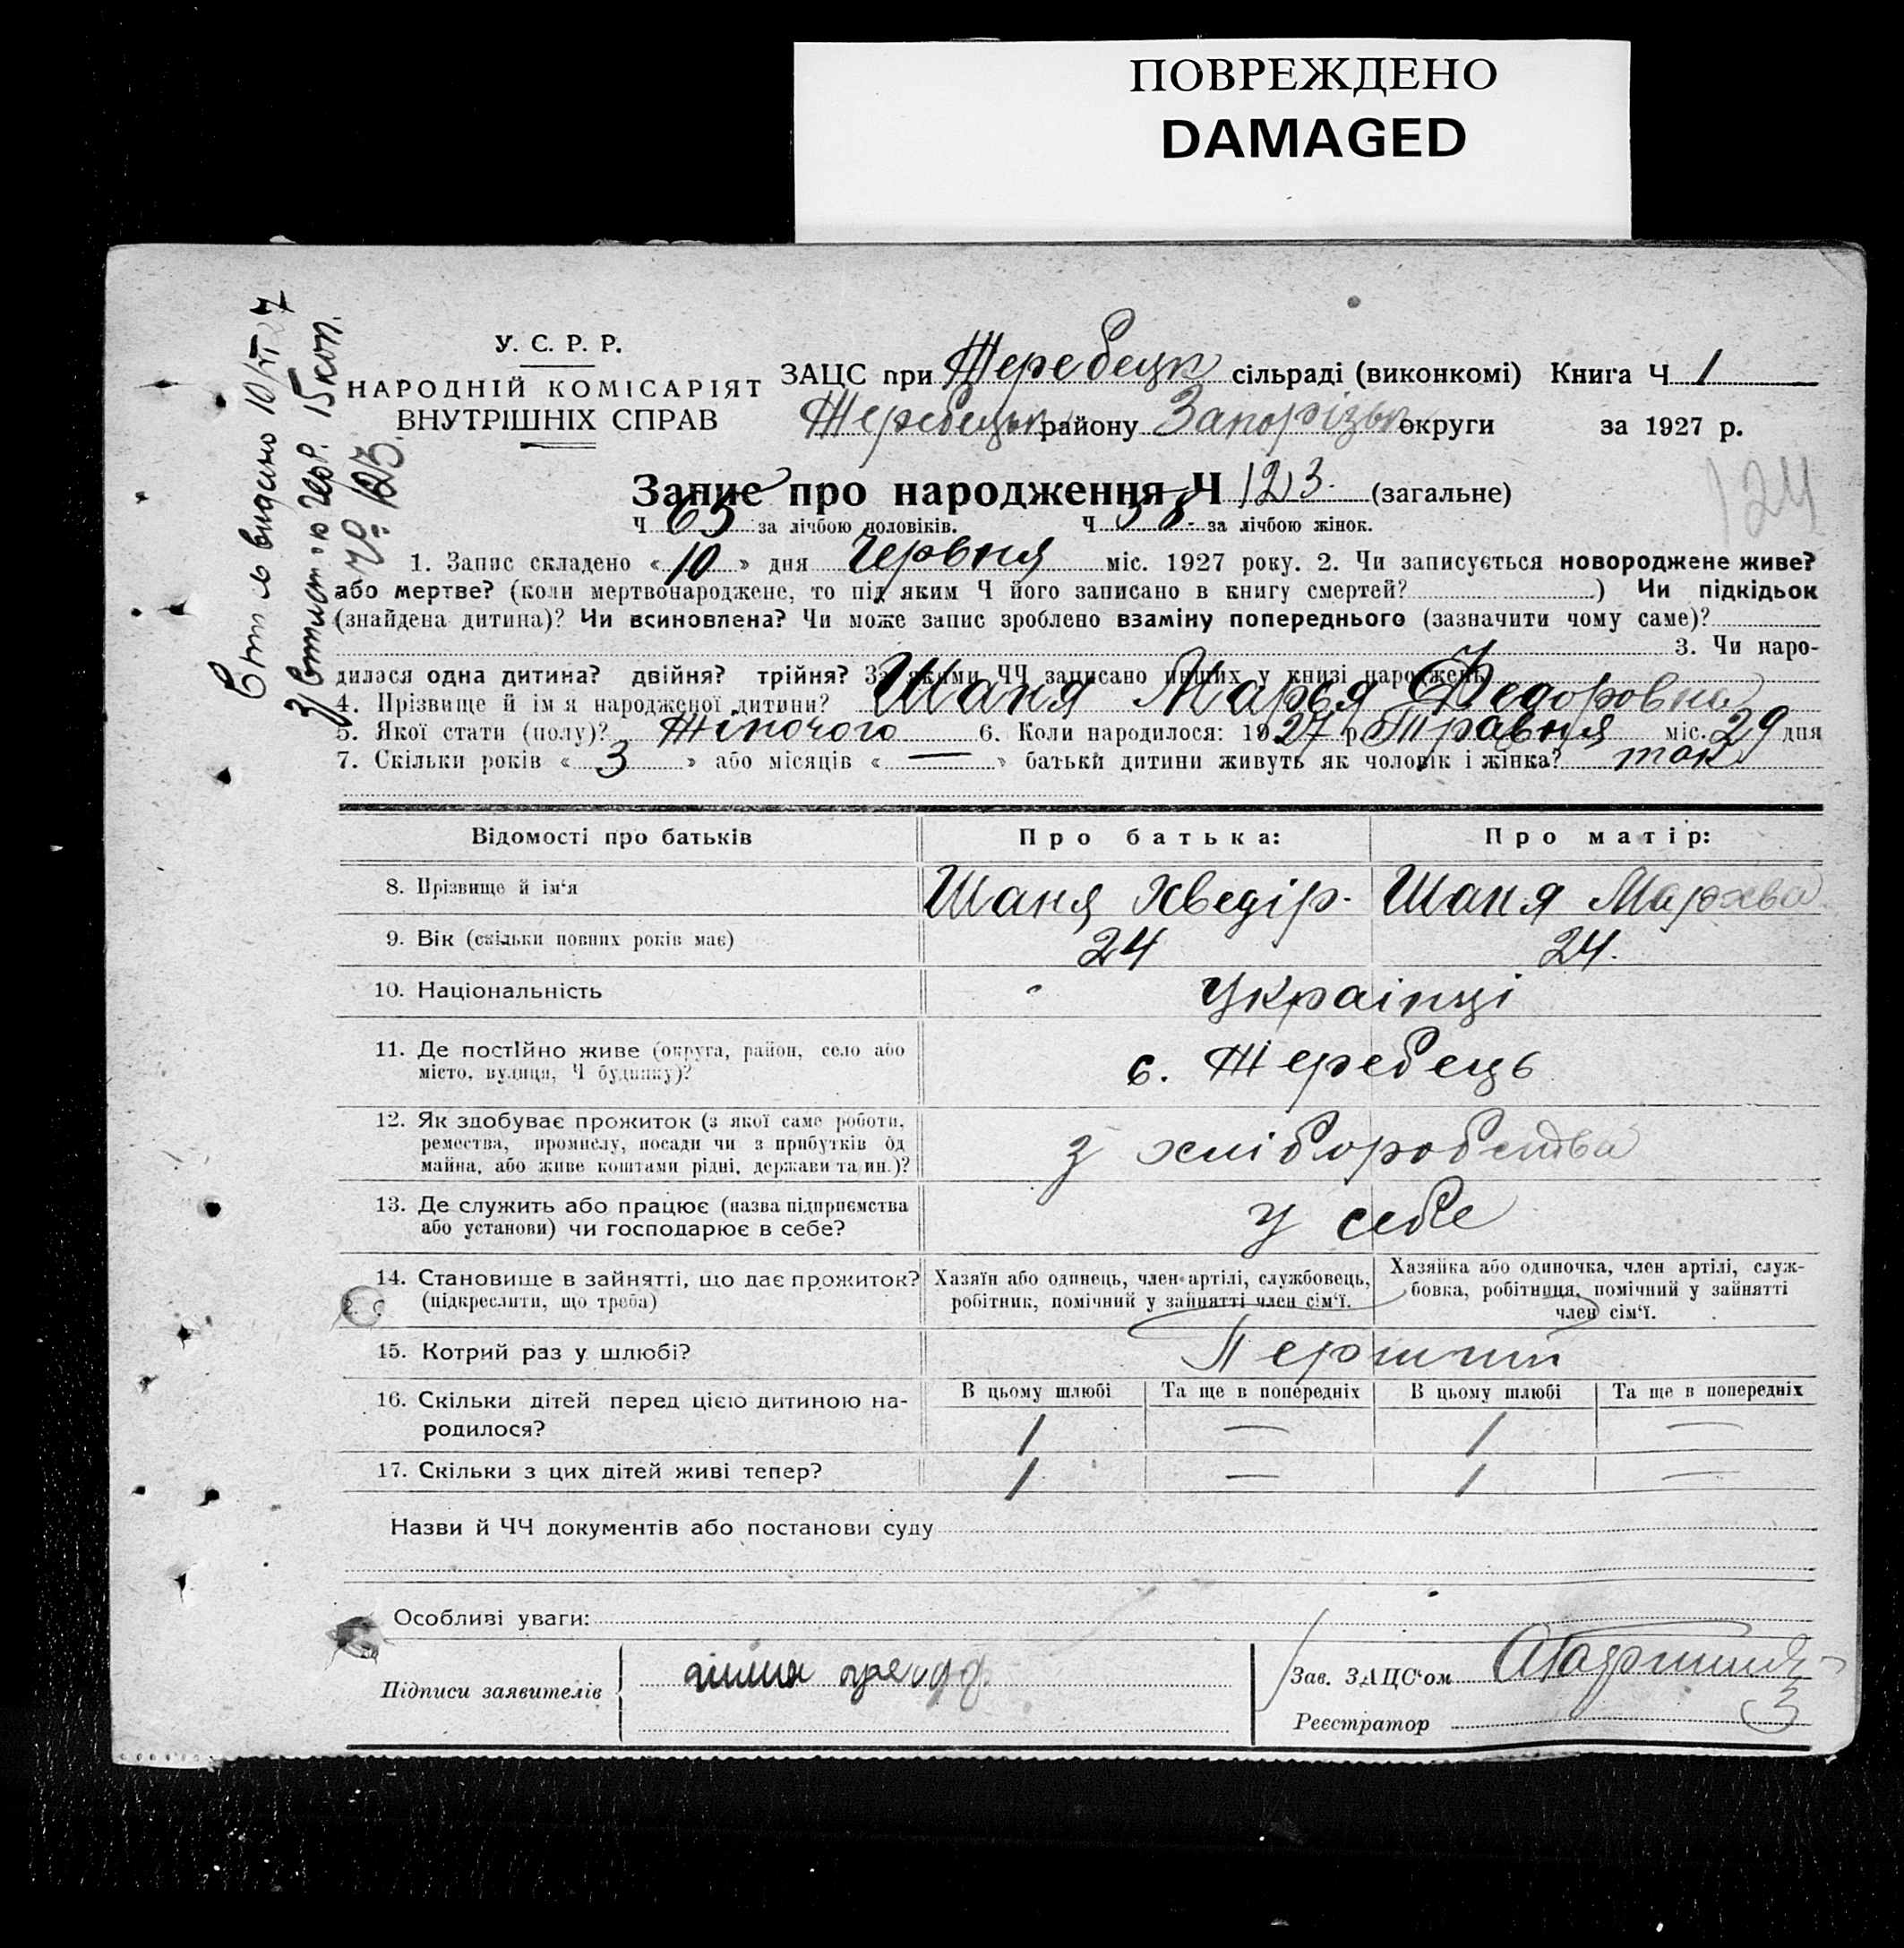 ПОВРЕЖДЕНО
DAMAGED
У. С. Р. Р.
НАРОДНІЙ КОМІСАРІЯТ
ВНУТРІШНІХ СПРАВ
ЗАЦС при Жеребецьк сільраді (виконкомі) Книга Ч 1
Жеребецьк району Запорізьк округи за 1927 р.
видано 10/VI 27
15 коп.
№ 123.
Запис про народження Ч 123. (загальне)
124
Ч 65 за лічбою чоловіків. Ч 58 за лічбою жінок.
1. Запис складено « 10 » дня Червня міс. 1927 року. 2. Чи записується новороджене живе?
або мертве? (коли мертвонароджене, то під яким Ч його записано в книгу смертей? ) Чи підкідьок
(знайдена дитина)? Чи всиновлена? Чи може запис зроблено взаміну попереднього (зазначити чому саме)?
3. Чи наро-
дилася одна дитина? двійня? трійня? За якими ЧЧ записано инших у книзі народжень
4. Прізвище й ім'я народженої дитини? Шаня Марья Федоровна
5. Якої стати (полу)? Жіночого 6. Коли народилося: 1927 р. Травня міс. 29 дня
7. Скільки років « 3 » або місяців « — » батьки дитини живуть як чоловік і жінка? так
Відомості про батьків Про батька: Про матір:
8. Прізвище й ім'я Шаня Хведір. Шаня Мархва
9. Вік (скільки повних років має) 24 24.
10. Національність Українці
11. Де постійно живе (округа, район, село або
місто, вулиця, Ч будинку)? с. Жеребець
12. Як здобуває прожиток (з якої саме роботи,
ремества, промислу, посади чи з прибутків од
майна, або живе коштами рідні, держави та ин.)? з хліборобства
13. Де служить або працює (назва підприємства
або установи) чи господарює в себе? у себе
14. Становище в зайнятті, що дає прожиток?
(підкреслити, що треба)
Хазяїн або одинець, член артілі, службовець,
робітник, помічний у зайнятті член сім'ї.
Хазяйка або одиночка, член артілі, служ-
бовка, робітниця, помічний у зайнятті
член сім'ї.
15. Котрий раз у шлюбі? Перший
16. Скільки дітей перед цією дитиною на-
родилося?
В цьому шлюбі Та ще в попередніх В цьому шлюбі Та ще в попередніх
1 — 1 —
17. Скільки з цих дітей живі тепер? 1 — 1 —
Назви й ЧЧ документів або постанови суду
Особливі уваги:
Підписи заявителів
Зав. ЗАЦС'ом
Реєстратор